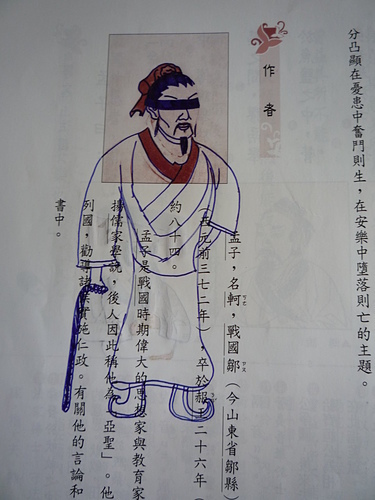 分凸顯在憂患中奮鬥則生，在安樂中墮落則亡的主題。
作者
孟子，名軻，戰國鄒（今山東省鄒縣）
（西元前三七二年）卒於赧王二十六年（
約八十四。
孟子是戰國時期偉大的思想家與教育家
揚儒家學說，後人因此稱他為「亞聖」。他
列國，勸導諸侯實施仁政。有關他的言論和
書中。